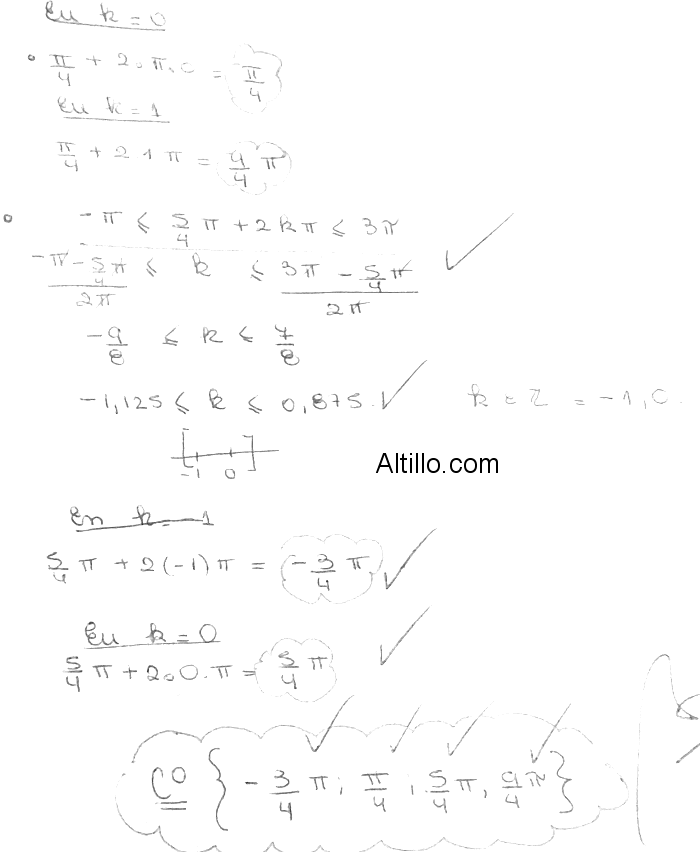 En k = 0
π/4 + 2.π.0 = π/4
En k = 1
π/4 + 2 1 π = 9/4 π
-π ≤ 5/4 π + 2kπ ≤ 3π
(-π - 5/4 π)/2π ≤ k ≤ (3π - 5/4 π)/2π
-9/8 ≤ k ≤ 7/8
-1,125 ≤ k ≤ 0,875. k = Z = -1, 0.
-1 0
Altillo.com
En k = -1
5/4 π + 2(-1)π = -3/4 π
En k = 0
5/4 π + 2.0.π = 5/4 π
C° { -3/4 π; π/4; 5/4 π, 9/4 π }